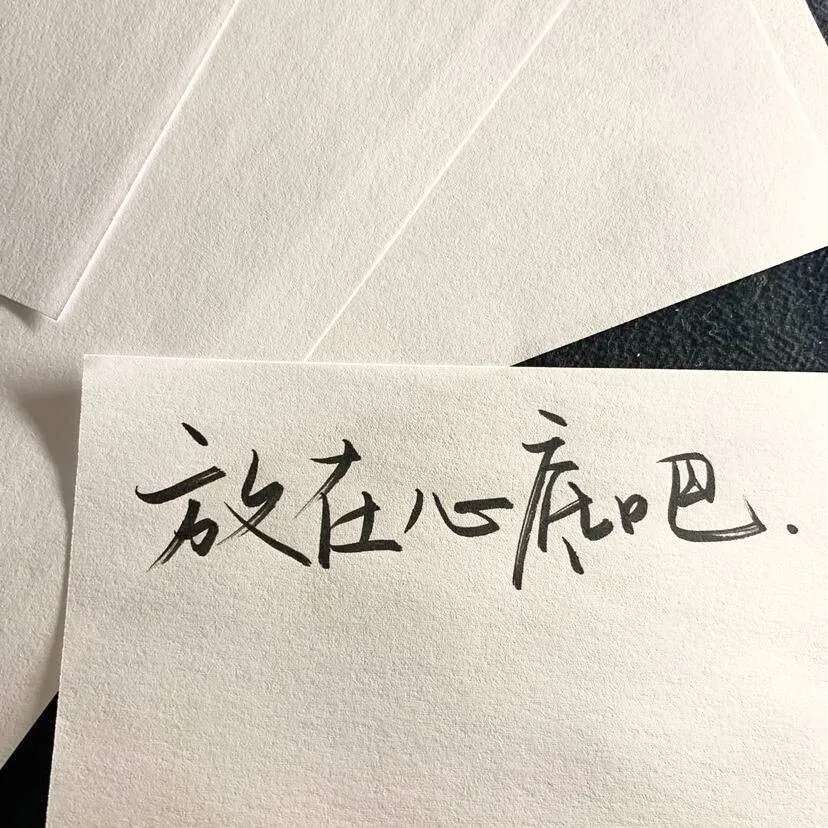 放在心底吧.